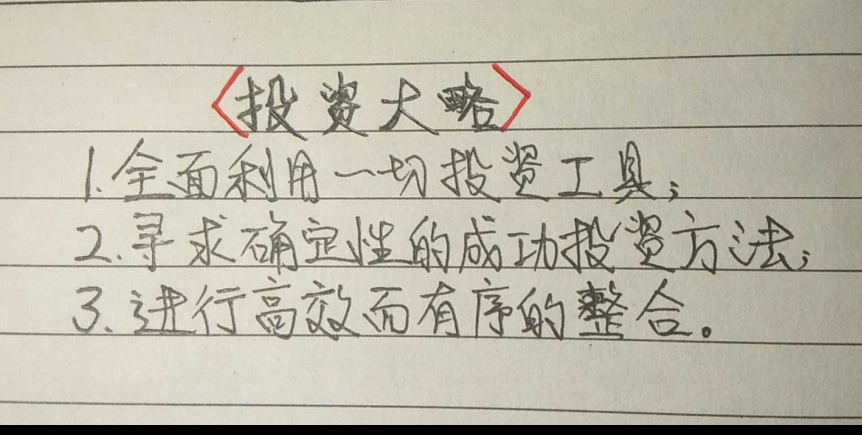 〈投资大略〉
1.全面利用一切投资工具;
2.寻求确定性的成功投资方法;
3.进行高效而有序的整合。